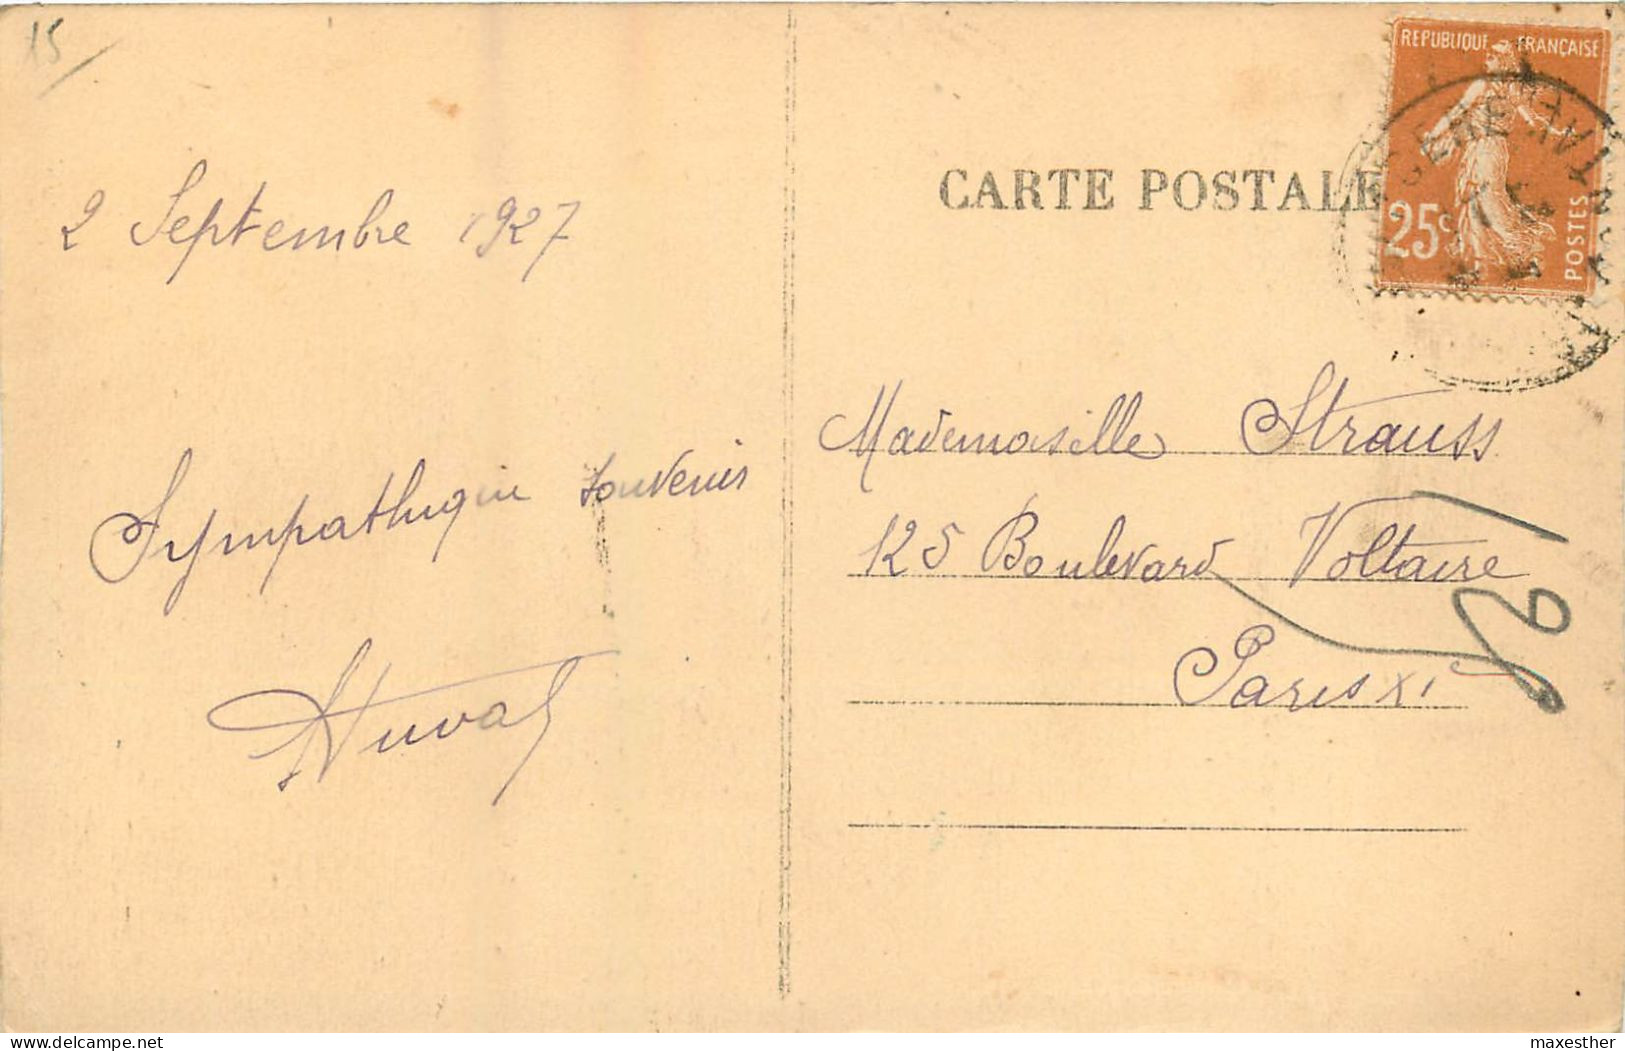 15
2 Septembre 1927
Sympathique souvenir
Duval
CARTE POSTALE
REPUBLIQUE FRANÇAISE
25c
POSTES
Mademoiselle Strauss
125 Boulevard Voltaire
Paris XI
maxesther